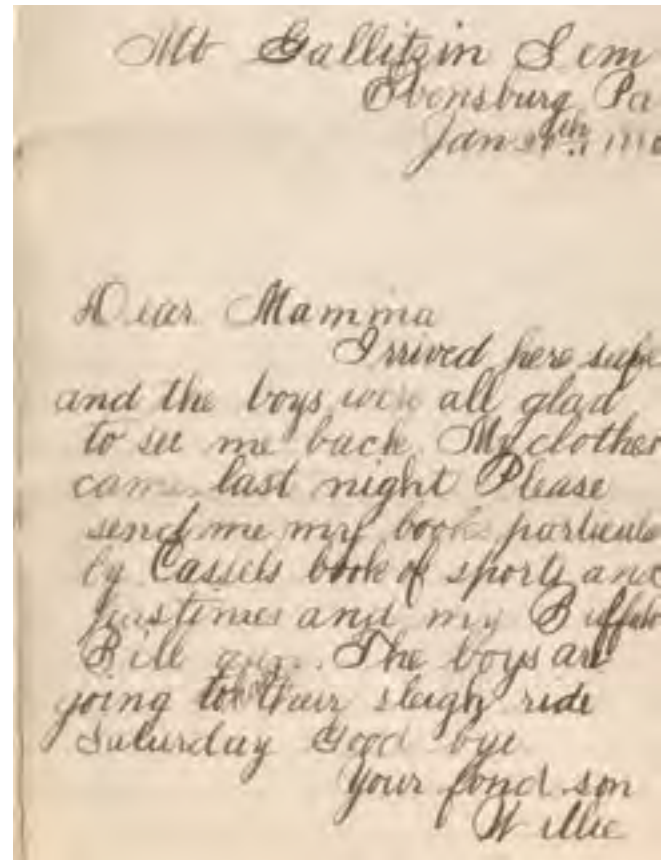 Mt Gallitzin Sem
Ebensburg Pa
Jan
Dear Mamma
I rrived here safe
and the boys were all glad
to see me back My clothes
came last night Please
send me my books particula
ly Cassels book of sports and
pastimes and my Buffalo
Bill gun. The boys are
going to their sleigh ride
Saturday Good bye
Your fond son
Willie